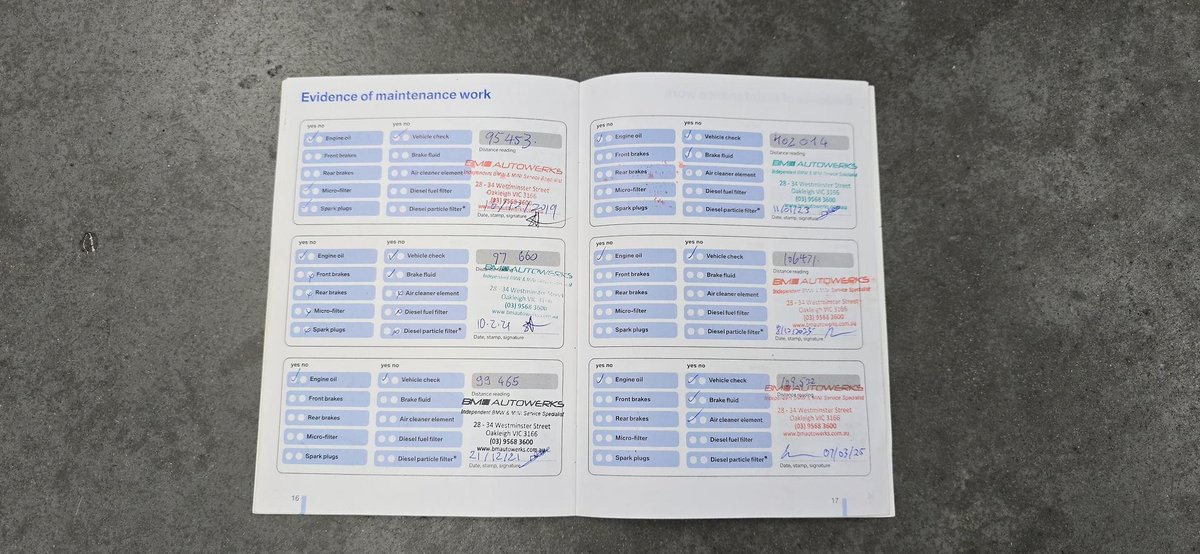 Evidence of maintenance work
yes no
yes no
Engine oil
Vehicle check
95 453.
Front brakes
Brake fluid
Distance reading
Rear brakes
Air cleaner element
BM AUTOWERKS
Independent BMW & MINI Service Specialist
Micro-filter
Diesel fuel filter
28 - 34 Westminster Street
Oakleigh VIC 3166
(03) 9568 3600
Spark plugs
Diesel particle filter*
2019
Date, stamp, signature
yes no
yes no
Engine oil
Vehicle check
97 660
Front brakes
Brake fluid
BM AUTOWERKS
Independent BMW & MINI Service
Rear brakes
Air cleaner element
28 - 34 Westminster Street
Oakleigh VIC 3166
Micro-filter
Diesel fuel filter
(03) 9568 3600
www.bmautowerks.com
Spark plugs
Diesel particle filter*
10.2.21
Date, stamp, signature
yes no
yes no
Engine oil
Vehicle check
99 465
Front brakes
Brake fluid
Distance reading
BM AUTOWERKS
Independent BMW & MINI Service Specialist
Rear brakes
Air cleaner element
28 - 34 Westminster Street
Oakleigh VIC 3166
Micro-filter
Diesel fuel filter
(03) 9568 3600
www.bmautowerks.com.au
Spark plugs
Diesel particle filter*
21/12/21
Date, stamp, signature
16
yes no
yes no
Engine oil
Vehicle check
102014
Front brakes
Brake fluid
Distance reading
BM AUTOWERKS
Independent BMW & MINI Service Specialist
Rear brakes
Air cleaner element
28 - 34 Westminster Street
Oakleigh VIC 3166
Micro-filter
Diesel fuel filter
(03) 9568 3600
www.bmautowerks.com.au
Spark plugs
Diesel particle filter*
Date, stamp, signature
yes no
yes no
Engine oil
Vehicle check
106471.
Front brakes
Brake fluid
Distance reading
BM AUTOWERKS
Independent BMW & MINI Service Specialist
Rear brakes
Air cleaner element
28 - 34 Westminster Street
Oakleigh VIC 3166
Micro-filter
Diesel fuel filter
(03) 9568 3600
www.bmautowerks.com.au
Spark plugs
Diesel particle filter*
Date, stamp, signature
yes no
yes no
Engine oil
Vehicle check
Front brakes
Brake fluid
BM AUTOWERKS
Distance reading
Independent BMW & MINI Service Specialist
Rear brakes
Air cleaner element
28 - 34 Westminster Street
Oakleigh VIC 3166
Micro-filter
Diesel fuel filter
(03) 9568 3600
www.bmautowerks.com.au
Spark plugs
Diesel particle filter*
07/03/25
Date, stamp, signature
17